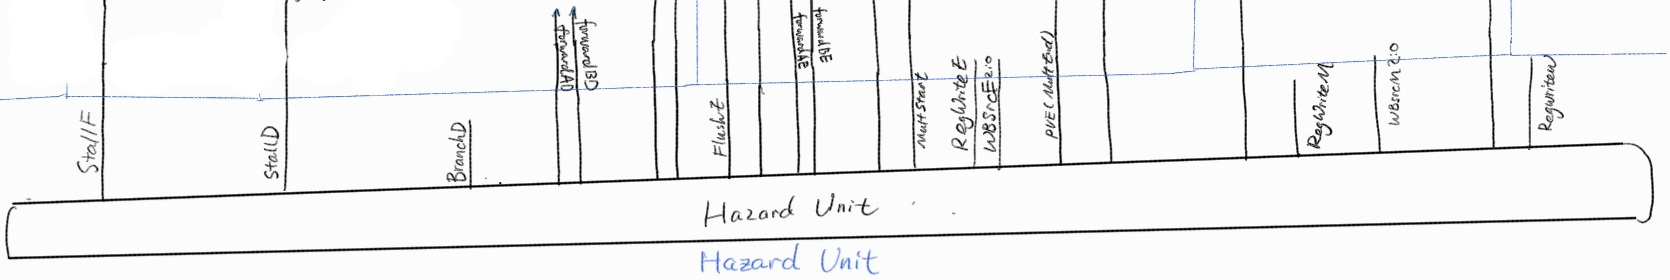 StallF
StallD
BranchD
forwardAD
forwardBD
FlushE
forwardAE
forwardBE
MultStart
RegWriteE
WBSrcE2:0
PVE(MultEnd)
RegWriteM
WBSrcM2:0
RegwriteW
Hazard Unit
Hazard Unit